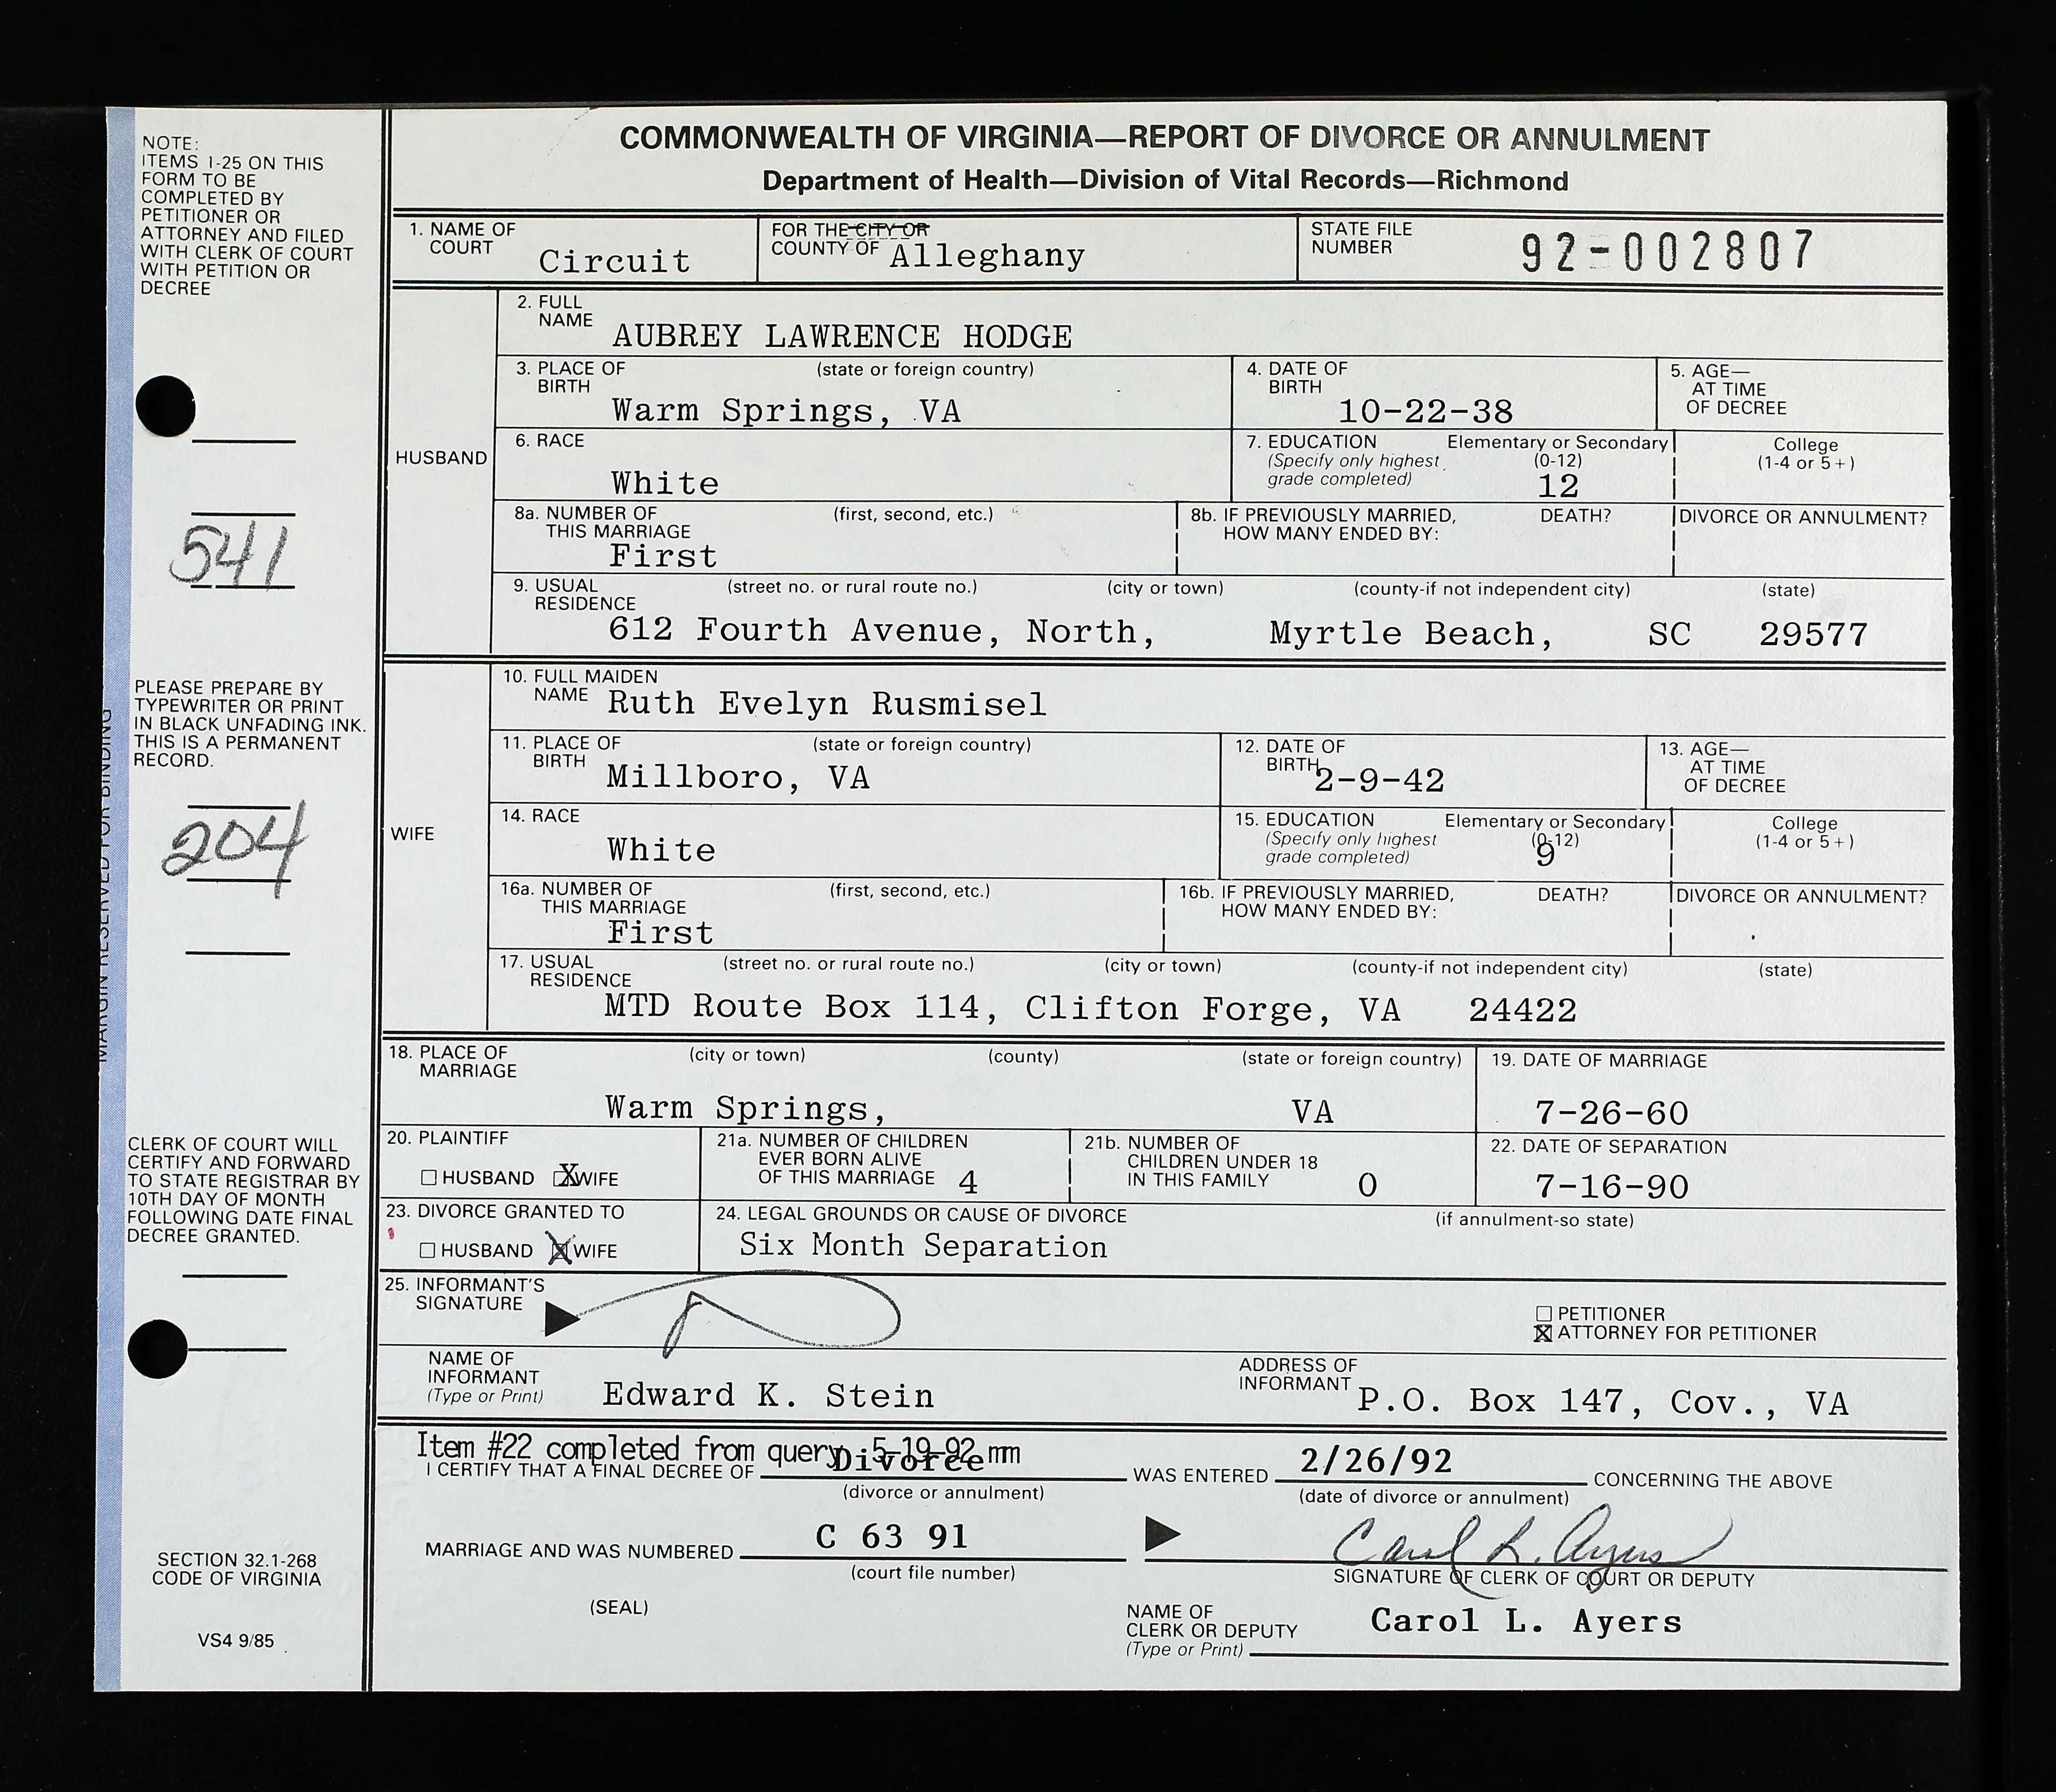 COMMONWEALTH OF VIRGINIA—REPORT OF DIVORCE OR ANNULMENT
Department of Health—Division of Vital Records—Richmond
NOTE:
ITEMS 1-25 ON THIS
FORM TO BE
COMPLETED BY
PETITIONER OR
ATTORNEY AND FILED
WITH CLERK OF COURT
WITH PETITION OR
DECREE
541
PLEASE PREPARE BY
TYPEWRITER OR PRINT
IN BLACK UNFADING INK.
THIS IS A PERMANENT
RECORD.
204
MARGIN RESERVED FOR BINDING
CLERK OF COURT WILL
CERTIFY AND FORWARD
TO STATE REGISTRAR BY
10TH DAY OF MONTH
FOLLOWING DATE FINAL
DECREE GRANTED.
SECTION 32.1-268
CODE OF VIRGINIA
VS4 9/85
1. NAME OF COURT Circuit
FOR THE CITY OR COUNTY OF Alleghany
STATE FILE NUMBER 92-002807
HUSBAND
2. FULL NAME AUBREY LAWRENCE HODGE
3. PLACE OF BIRTH (state or foreign country) Warm Springs, VA
4. DATE OF BIRTH 10-22-38
5. AGE— AT TIME OF DECREE
6. RACE White
7. EDUCATION (Specify only highest grade completed) Elementary or Secondary (0-12) 12
College (1-4 or 5+)
8a. NUMBER OF THIS MARRIAGE (first, second, etc.) First
8b. IF PREVIOUSLY MARRIED, HOW MANY ENDED BY: DEATH? DIVORCE OR ANNULMENT?
9. USUAL RESIDENCE (street no. or rural route no.) (city or town) (county-if not independent city) (state)
612 Fourth Avenue, North, Myrtle Beach, SC 29577
WIFE
10. FULL MAIDEN NAME Ruth Evelyn Rusmisel
11. PLACE OF BIRTH (state or foreign country) Millboro, VA
12. DATE OF BIRTH 2-9-42
13. AGE— AT TIME OF DECREE
14. RACE White
15. EDUCATION (Specify only highest grade completed) Elementary or Secondary (0-12) 9
College (1-4 or 5+)
16a. NUMBER OF THIS MARRIAGE (first, second, etc.) First
16b. IF PREVIOUSLY MARRIED, HOW MANY ENDED BY: DEATH? DIVORCE OR ANNULMENT?
17. USUAL RESIDENCE (street no. or rural route no.) (city or town) (county-if not independent city) (state)
MTD Route Box 114, Clifton Forge, VA 24422
18. PLACE OF MARRIAGE (city or town) (county) (state or foreign country)
Warm Springs, VA
19. DATE OF MARRIAGE 7-26-60
20. PLAINTIFF
☐ HUSBAND ☒ WIFE
21a. NUMBER OF CHILDREN EVER BORN ALIVE OF THIS MARRIAGE 4
21b. NUMBER OF CHILDREN UNDER 18 IN THIS FAMILY 0
22. DATE OF SEPARATION 7-16-90
23. DIVORCE GRANTED TO
☐ HUSBAND ☒ WIFE
24. LEGAL GROUNDS OR CAUSE OF DIVORCE (if annulment-so state)
Six Month Separation
25. INFORMANT'S SIGNATURE
☐ PETITIONER
☒ ATTORNEY FOR PETITIONER
NAME OF INFORMANT (Type or Print) Edward K. Stein
ADDRESS OF INFORMANT P.O. Box 147, Cov., VA
Item #22 completed from query 5-19-92 mm
I CERTIFY THAT A FINAL DECREE OF Divorce WAS ENTERED 2/26/92 CONCERNING THE ABOVE
(divorce or annulment) (date of divorce or annulment)
MARRIAGE AND WAS NUMBERED C 63 91
(court file number)
Carol L. Ayers
SIGNATURE OF CLERK OF COURT OR DEPUTY
(SEAL)
NAME OF CLERK OR DEPUTY (Type or Print) Carol L. Ayers